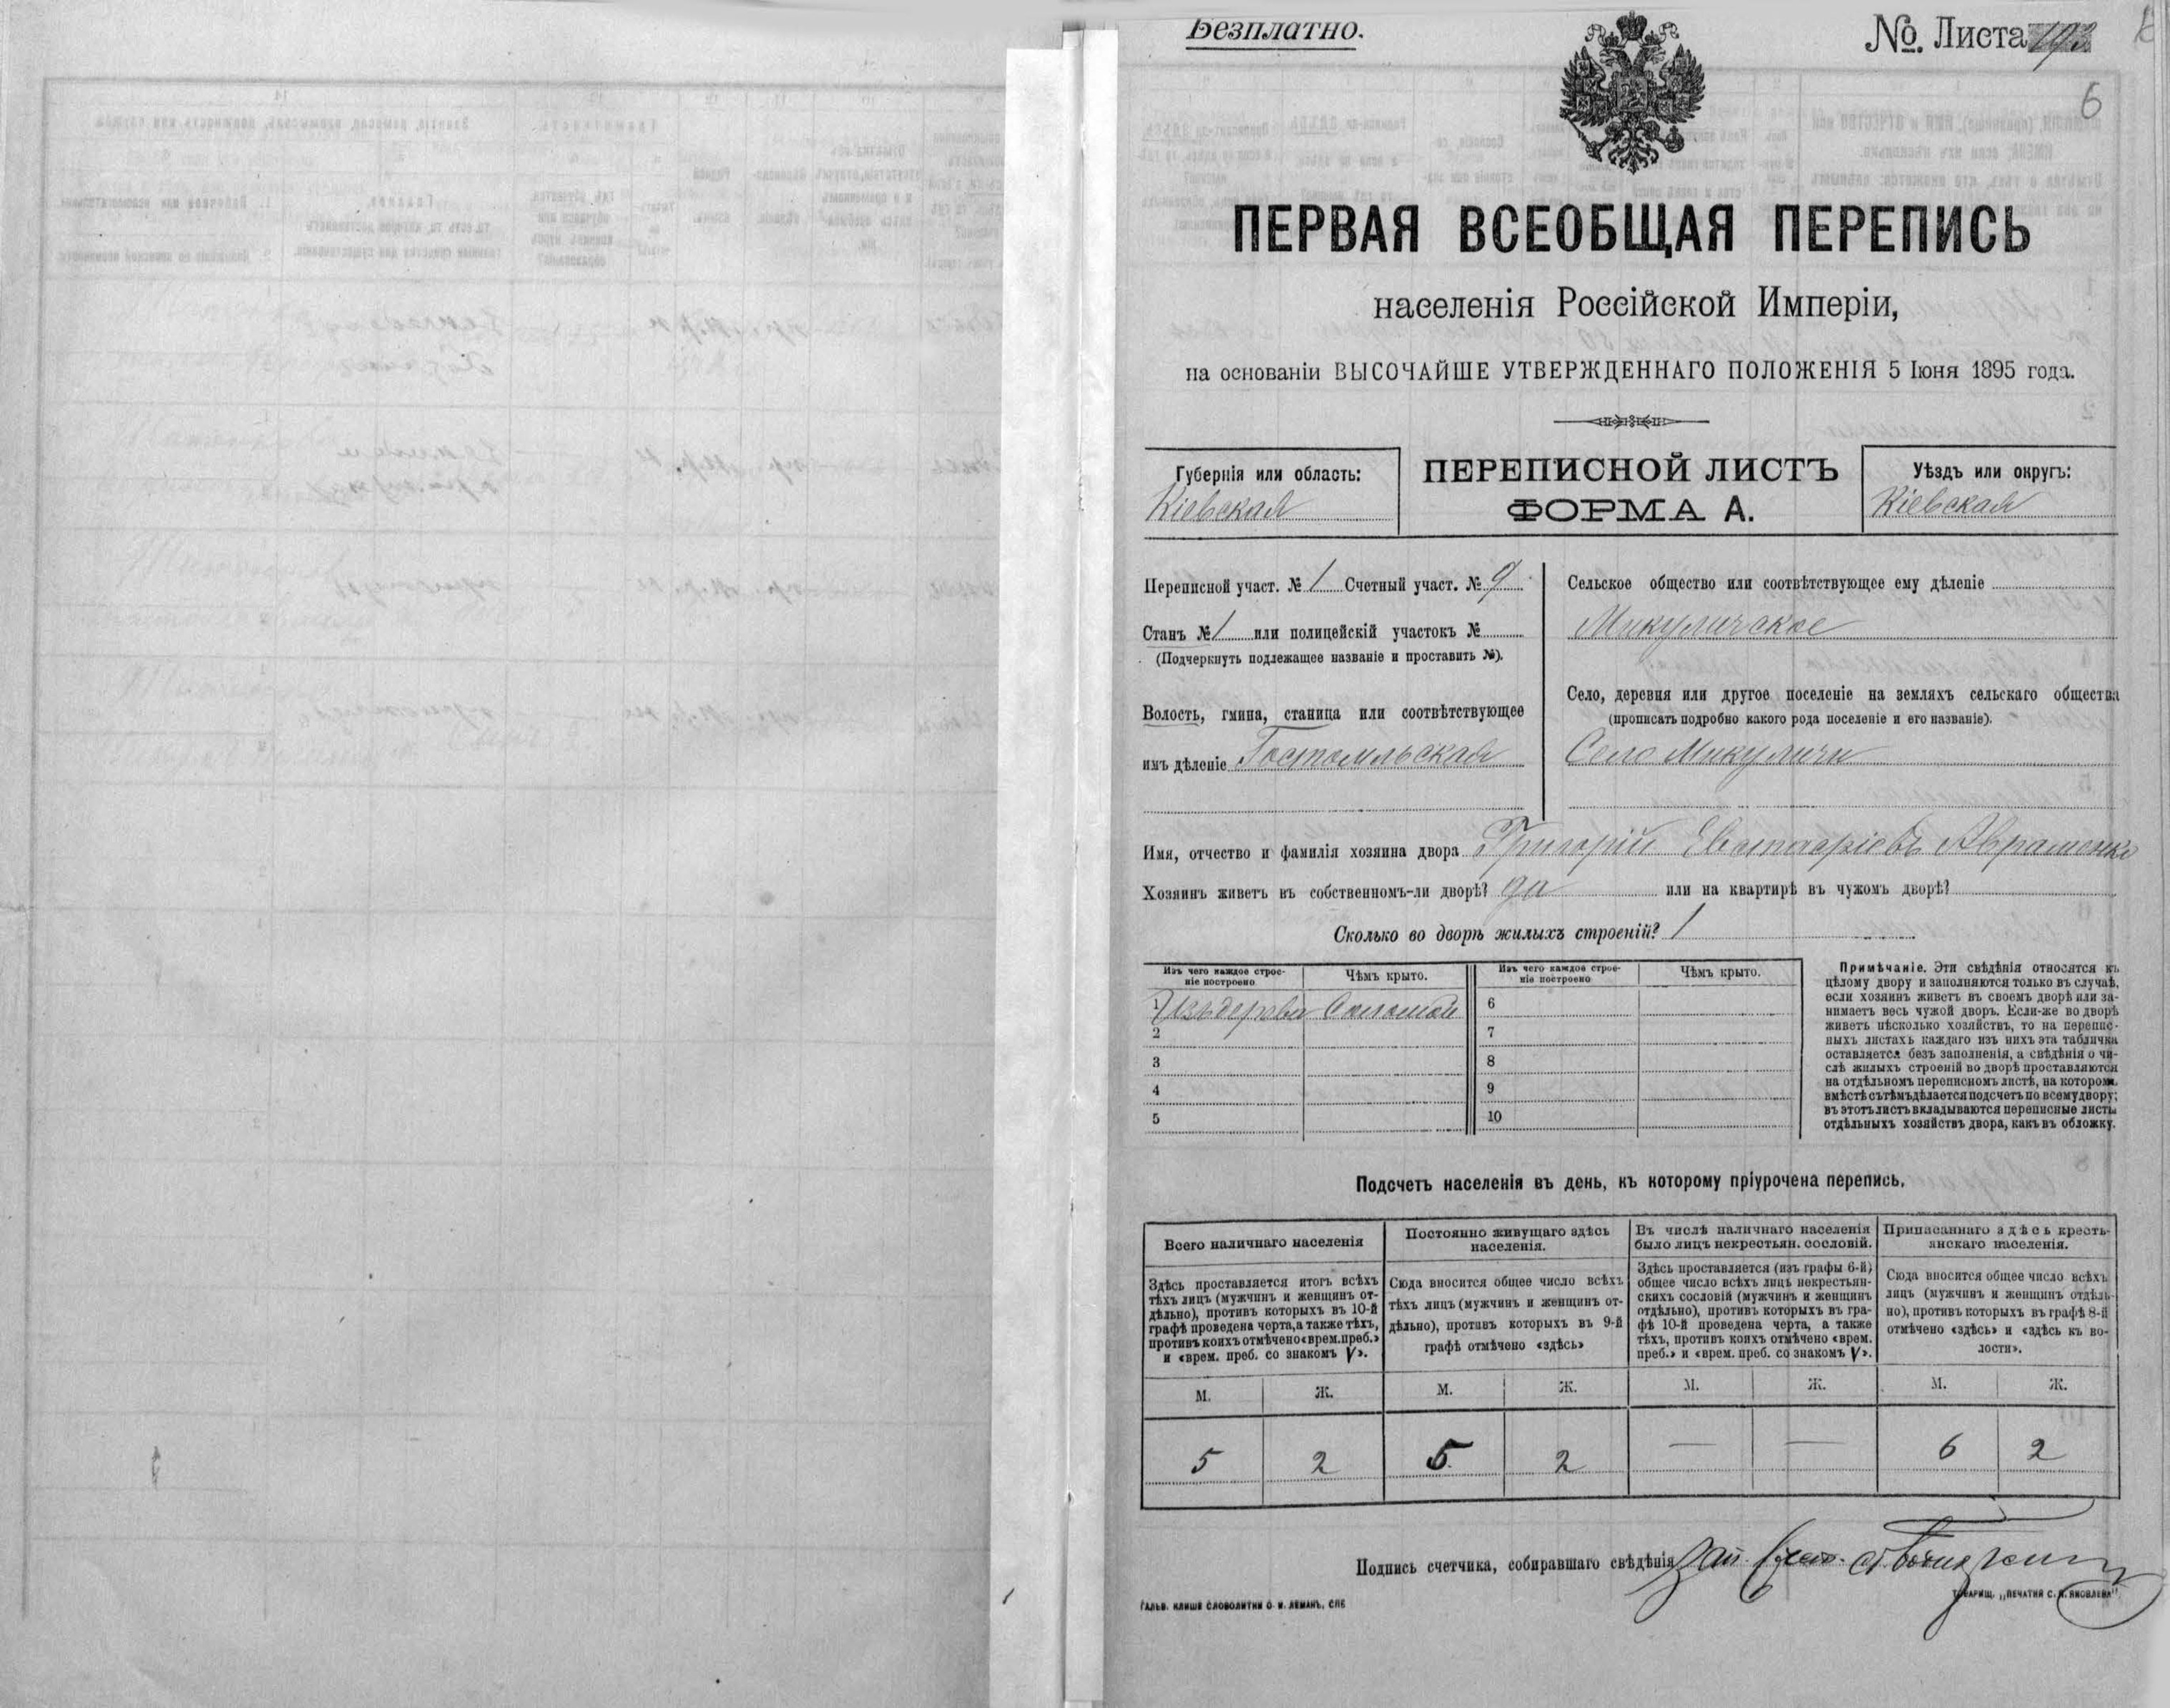 Безплатно.
№. Листа 193
6
ПЕРВАЯ ВСЕОБЩАЯ ПЕРЕПИСЬ
населенія Россійской Имперіи,
на основаніи ВЫСОЧАЙШЕ УТВЕРЖДЕННАГО ПОЛОЖЕНІЯ 5 Іюня 1895 года.
Губернія или область:
Кіевская
ПЕРЕПИСНОЙ ЛИСТЪ
ФОРМА А.
Уѣздъ или округъ:
Кіевская
Переписной участ. № 1 Счетный участ. № 9
Станъ № 1 или полицейскій участокъ №
(Подчеркнуть подлежащее названіе и проставить №).
Волость, гмина, станица или соотвѣтствующее
имъ дѣленіе Гостомльская
Сельское общество или соотвѣтствующее ему дѣленіе
Микуличское
Село, деревня или другое поселеніе на земляхъ сельскаго общества
(прописать подробно какого рода поселеніе и его названіе).
Село Микуличи
Имя, отчество и фамилія хозяина двора Григорій Евстафіевъ Авраменко
Хозяинъ живетъ въ собственномъ-ли дворѣ? да или на квартирѣ въ чужомъ дворѣ?
Сколько во дворѣ жилыхъ строеній? 1
Изъ чего каждое строе-
ніе построено
Чѣмъ крыто.
Изъ чего каждое строе-
ніе построено
Чѣмъ крыто.
1 Изъ дерева Соломой
2
3
4
5
6
7
8
9
10
Примѣчаніе. Эти свѣдѣнія относятся къ
цѣлому двору и заполняются только въ случаѣ,
если хозяинъ живетъ въ своемъ дворѣ или за-
нимаетъ весь чужой дворъ. Если-же во дворѣ
живетъ нѣсколько хозяйствъ, то на перепис-
ныхъ листахъ каждаго изъ нихъ эта табличка
оставляется безъ заполненія, а свѣдѣнія о чи-
слѣ жилыхъ строеній во дворѣ проставляются
на отдѣльномъ переписномъ листѣ, на которомъ
вмѣстѣ съ тѣмъ дѣлается подсчетъ по всему двору;
въ этотъ листъ вкладываются переписные листы
отдѣльныхъ хозяйствъ двора, какъ въ обложку.
Подсчетъ населенія въ день, къ которому пріурочена перепись.
Всего наличнаго населенія
Здѣсь проставляется итогъ всѣхъ
тѣхъ лицъ (мужчинъ и женщинъ от-
дѣльно), противъ которыхъ въ 10-й
графѣ проведена черта, а также тѣхъ,
противъ коихъ отмѣчено «врем. преб.»
и «врем. преб. со знакомъ V».
Постоянно живущаго здѣсь
населенія.
Сюда вносится общее число всѣхъ
тѣхъ лицъ (мужчинъ и женщинъ от-
дѣльно), противъ которыхъ въ 9-й
графѣ отмѣчено «здѣсь»
Въ числѣ наличнаго населенія
было лицъ некрестьян. сословій.
Здѣсь проставляется (изъ графы 6-й)
общее число всѣхъ лицъ некрестьян-
скихъ сословій (мужчинъ и женщинъ
отдѣльно), противъ которыхъ въ гра-
фѣ 10-й проведена черта, а также
тѣхъ, противъ коихъ отмѣчено «врем.
преб.» и «врем. преб. со знакомъ V».
Приписаннаго здѣсь кресть-
янскаго населенія.
Сюда вносится общее число всѣхъ
лицъ (мужчинъ и женщинъ отдѣль-
но), противъ которыхъ въ графѣ 8-й
отмѣчено «здѣсь» и «здѣсь къ во-
лости».
М. Ж. М. Ж. М. Ж. М. Ж.
5 2 5 2 — — 6 2
Подпись счетчика, собиравшаго свѣдѣнія
ГАЛЬВ. КЛИШЕ СЛОВОЛИТНИ О. И. ЛЕМАНЪ, СПБ
ТОВАРИЩ. „ПЕЧАТНЯ С. П. ЯКОВЛЕВА"